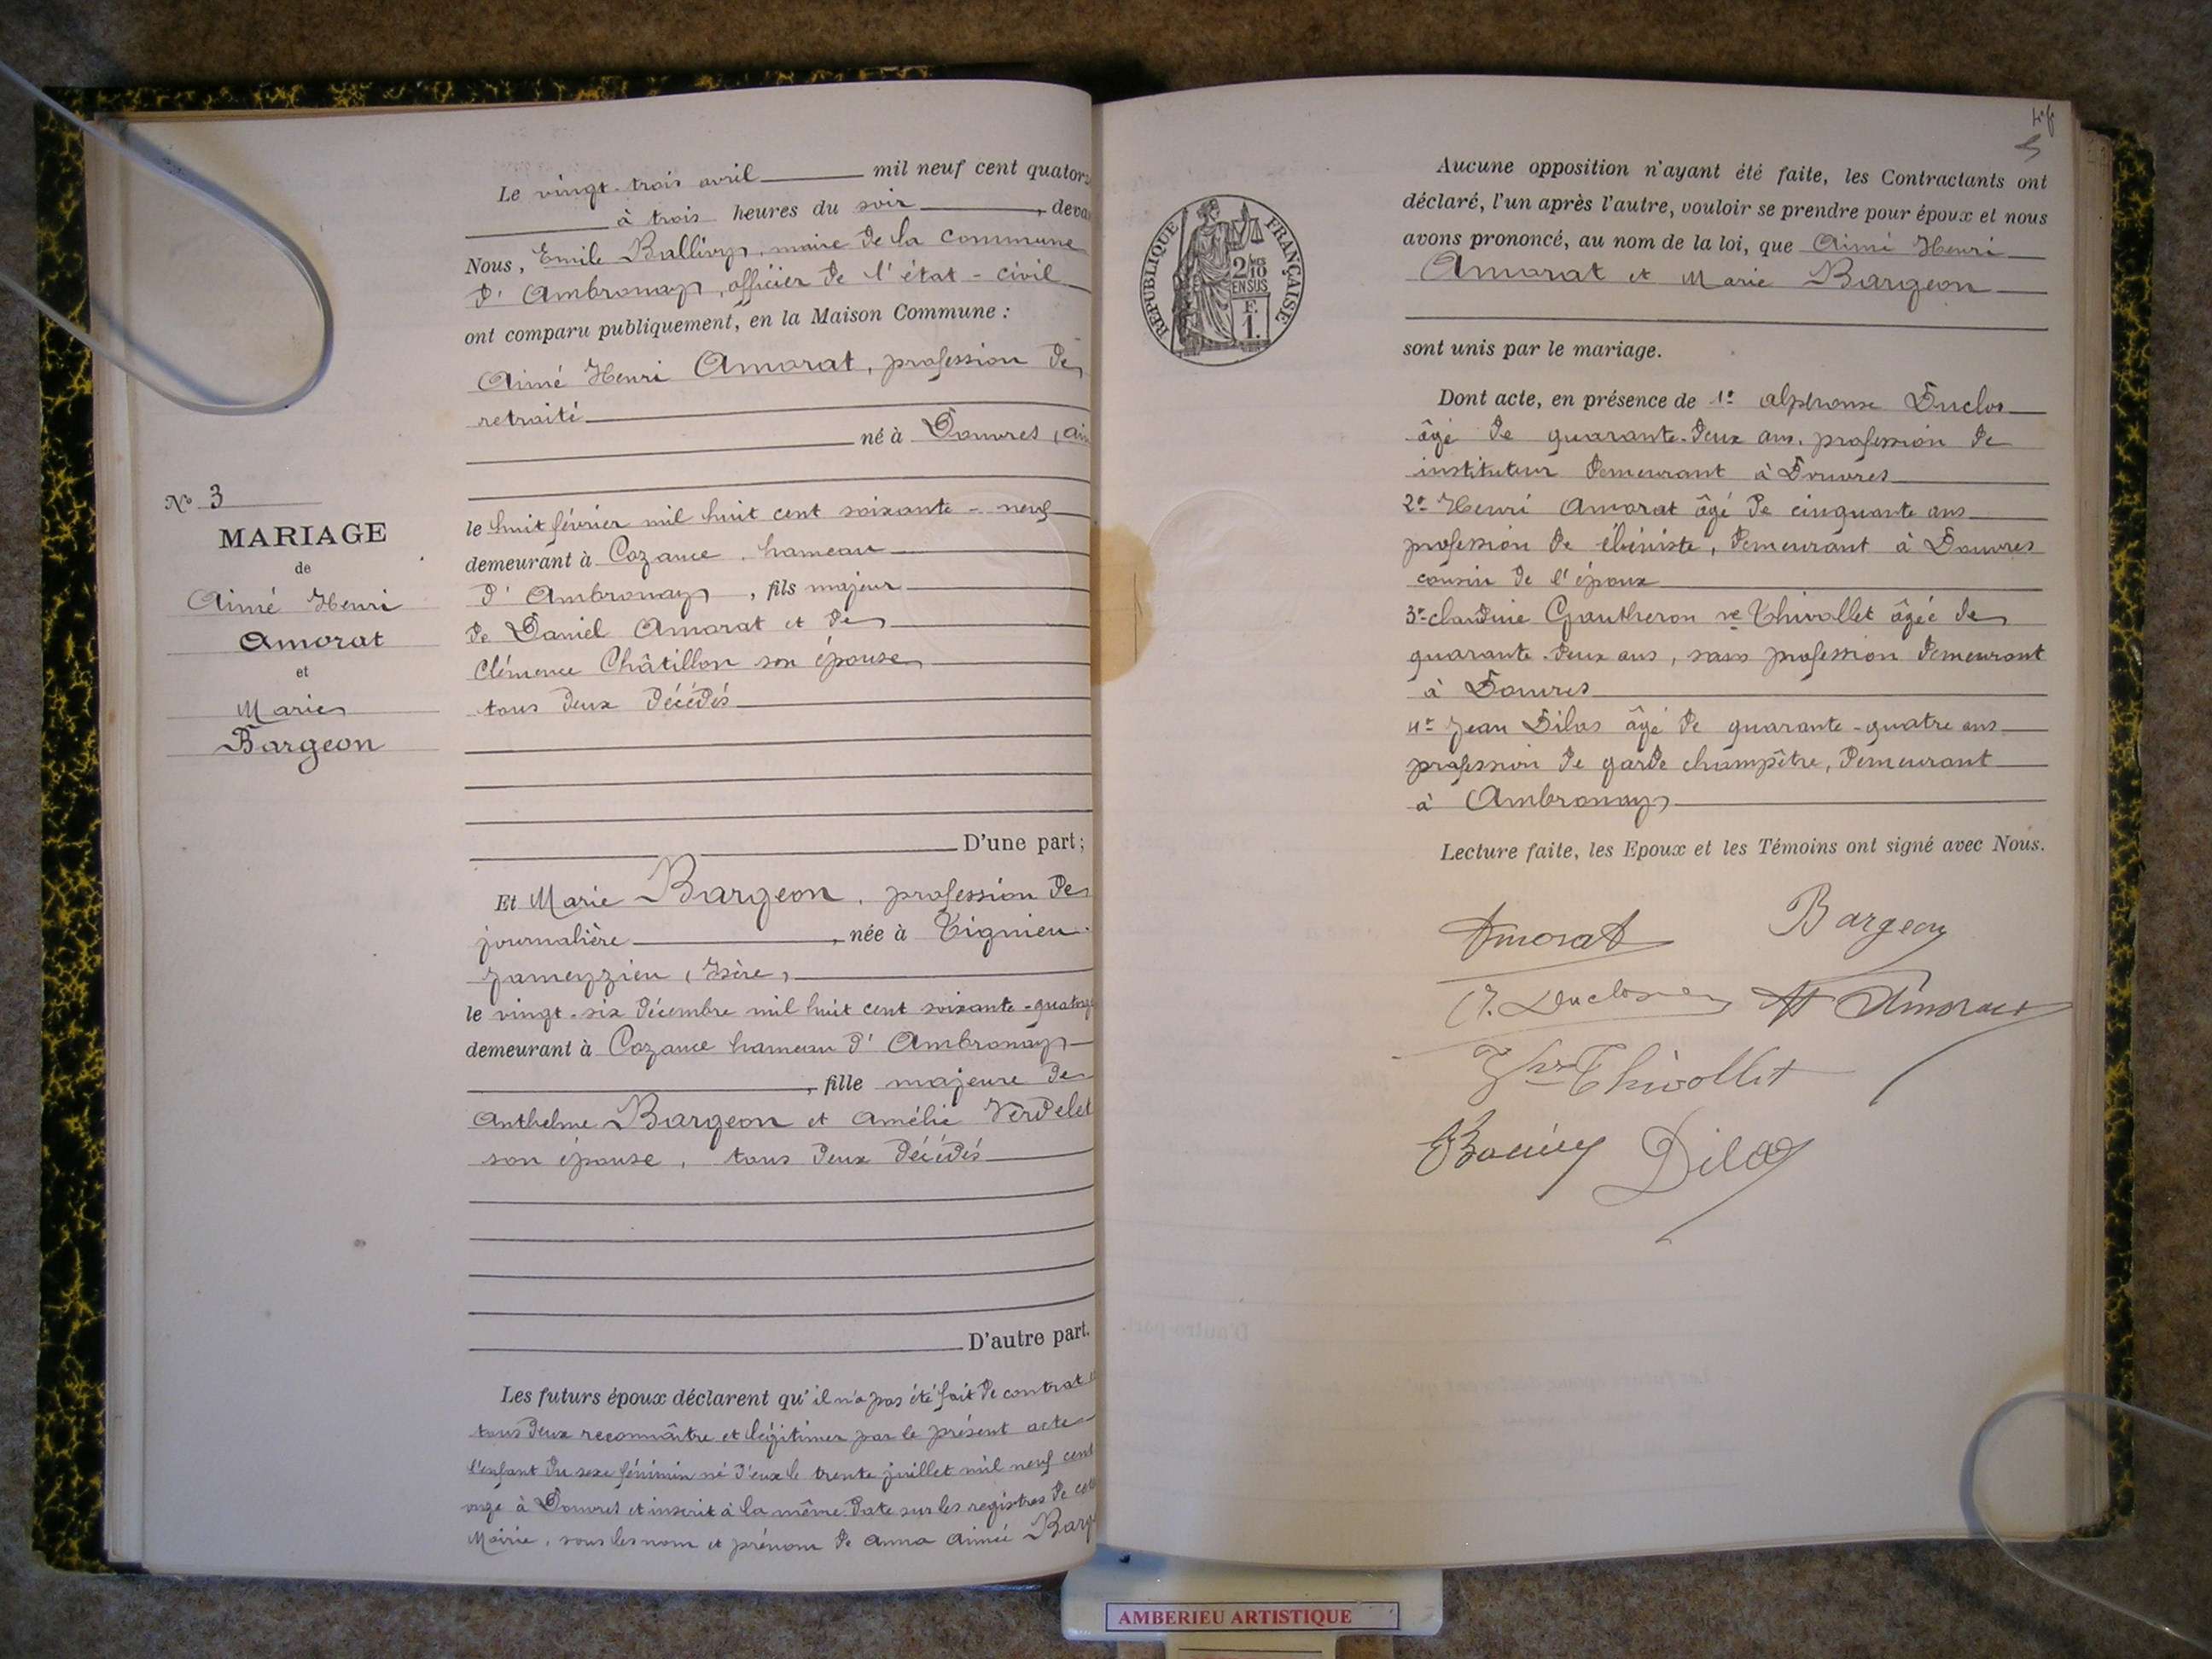 Le vingt-trois avril mil neuf cent quatorz
à trois heures du soir, deva
Nous, Emile Ballivy, maire de la commune
d'Ambronay, officier de l'état-civil
ont comparu publiquement, en la Maison Commune :
Aimé Henri Amorat, profession de
retraité
né à Douvres (Ain
le huit février mil huit cent soixante-neuf
demeurant à Cozance, hameau
d'Ambronay, fils majeur
de Daniel Amorat et de
Clémence Châtillon son épouse
tous deux décédés
D'une part;
Et Marie Bargeon, profession de
journalière, née à Tignieu-
Jameyzieu (Isère)
le vingt-six décembre mil huit cent soixante-quatorz
demeurant à Cozance hameau d'Ambronay
, fille majeure de
Anthelme Bargeon et Amélie Verdelet
son épouse, tous deux décédés
D'autre part.
Les futurs époux déclarent qu'il n'a pas été fait de contrat
tous deux reconnaître et légitimer par le présent acte
l'enfant du sexe féminin né d'eux le trente juillet mil neuf cent
onze à Douvres et inscrit à la même date sur les registres de cette
Mairie, sous les nom et prénom de Anna Aimée Barg
N° 3
MARIAGE
de
Aimé Henri
Amorat
et
Marie
Bargeon
REPUBLIQUE FRANÇAISE
2/10
EN SUS
F.
1.
Aucune opposition n'ayant été faite, les Contractants ont
déclaré, l'un après l'autre, vouloir se prendre pour époux et nous
avons prononcé, au nom de la loi, que Aimé Henri
Amorat et Marie Bargeon
sont unis par le mariage.
Dont acte, en présence de 1° Alphonse Duclos
âgé de quarante-deux ans, profession de
instituteur demeurant à Douvres
2° Henri Amorat âgé de cinquante ans
profession de ébéniste, demeurant à Douvres
cousin de l'époux
3° Claudine Gautheron ve Thivollet âgée de
quarante-deux ans, sans profession demeurant
à Douvres
4° Jean Dilas âgé de quarante-quatre ans
profession de garde champêtre, demeurant
à Ambronay
Lecture faite, les Epoux et les Témoins ont signé avec Nous.
Amorat Bargeon
A. Duclos H Amorat
Thivollet
Dilas
AMBERIEU ARTISTIQUE